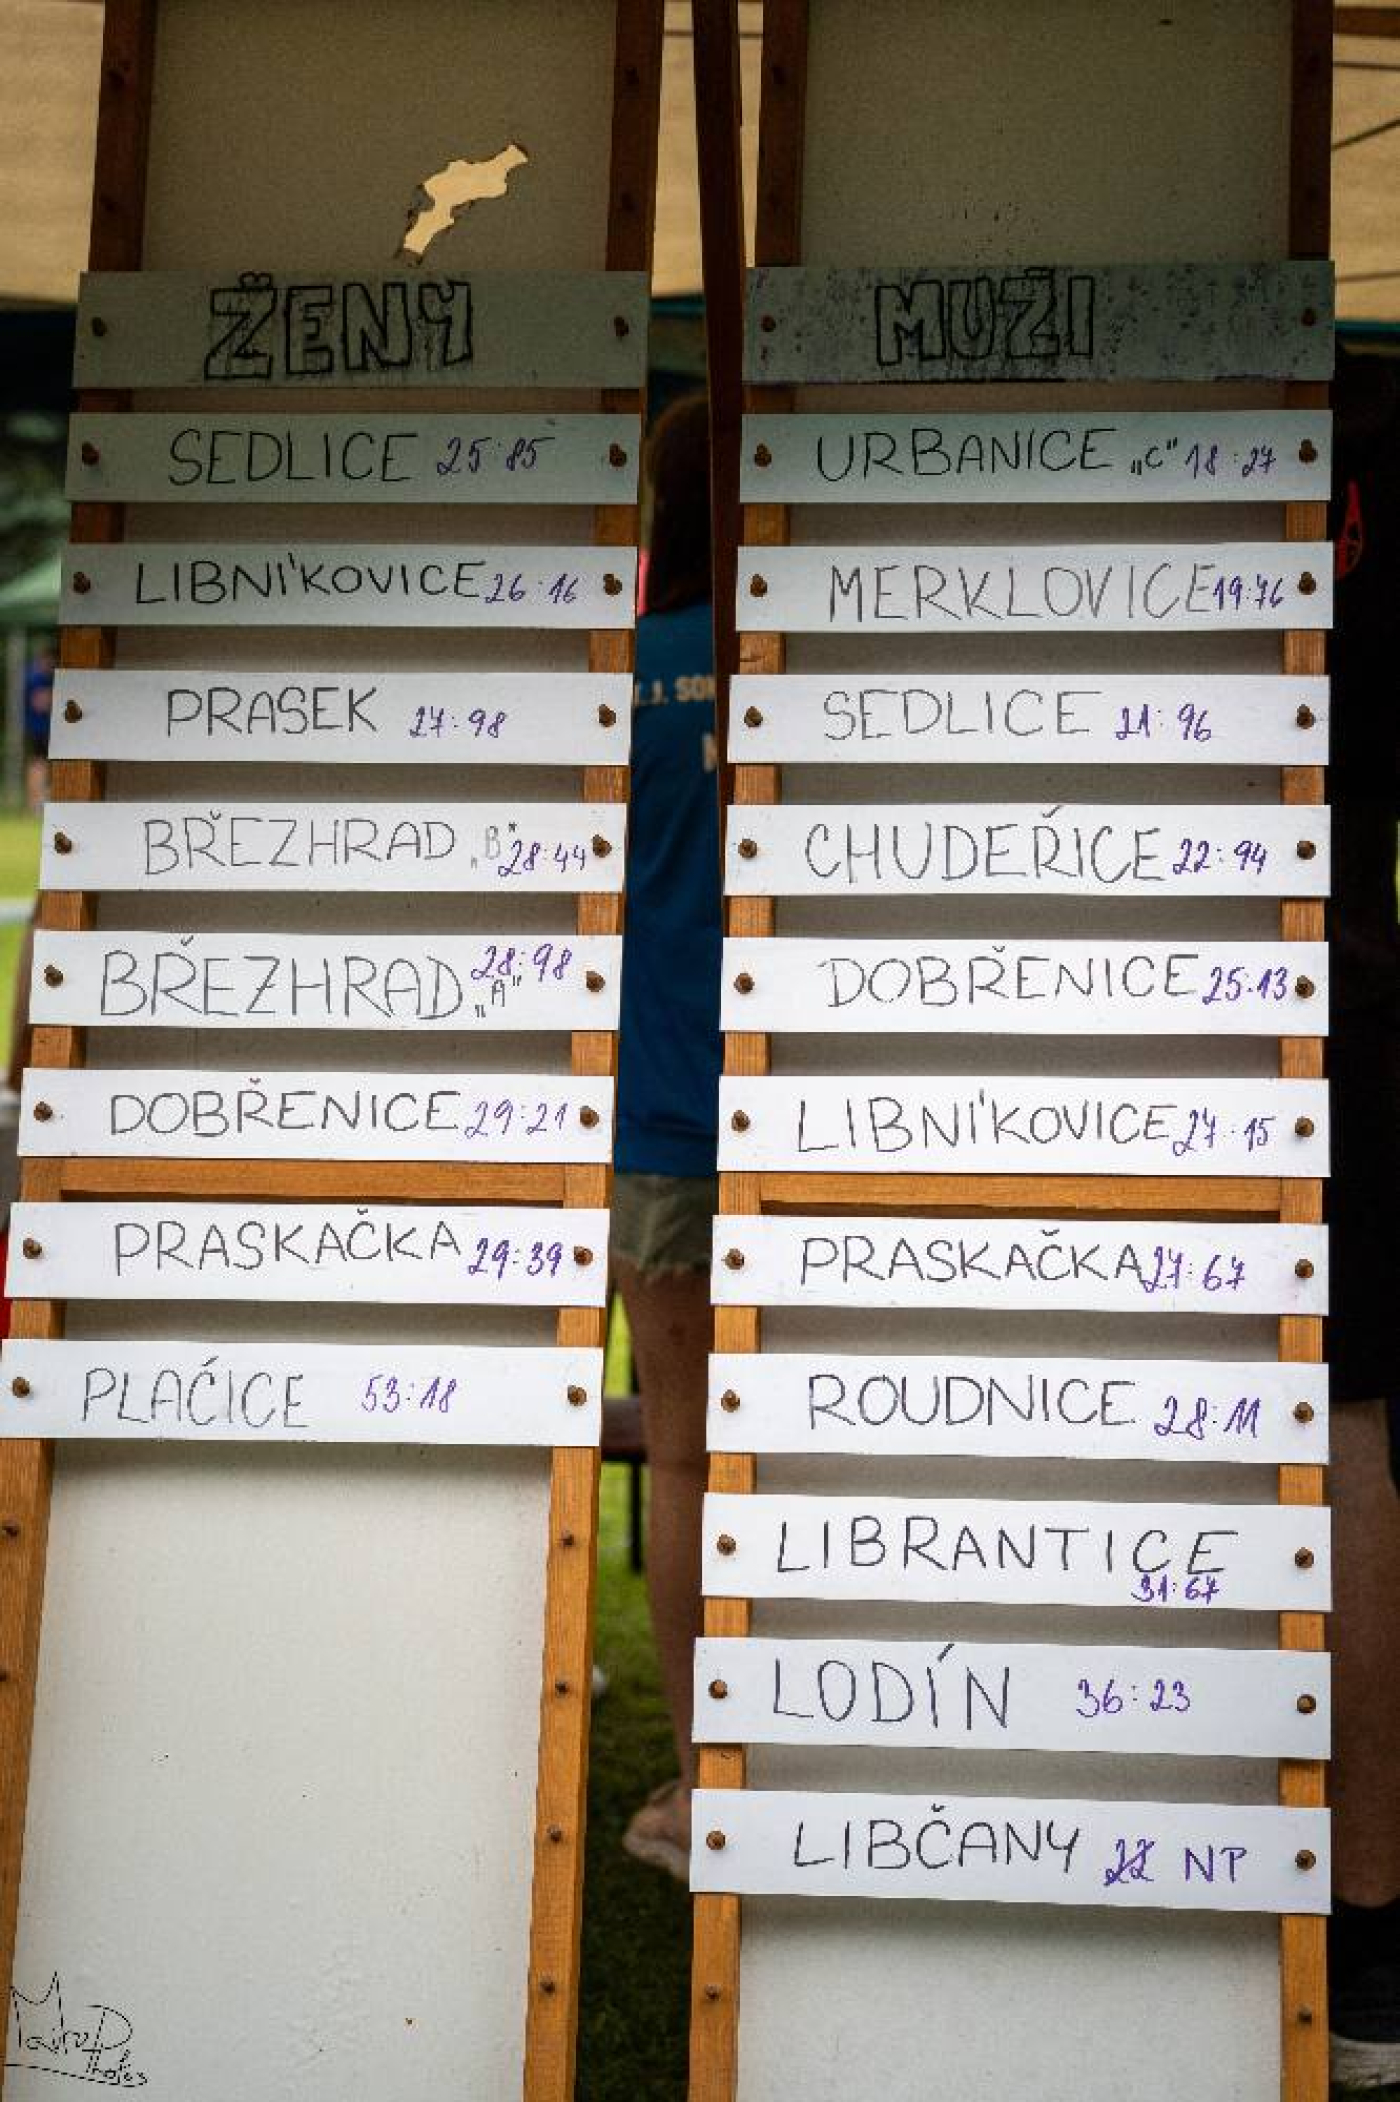 ŽENY
SEDLICE 25:85
LIBNÍKOVICE 26:16
PRASEK 27:98
BŘEZHRAD „B" 28:44
BŘEZHRAD „A" 28:98
DOBŘENICE 29:21
PRASKAČKA 29:39
PLAČICE 53:18
MUŽI
URBANICE „C" 18:27
MERKLOVICE 19:76
SEDLICE 21:96
CHUDEŘICE 22:94
DOBŘENICE 25:13
LIBNÍKOVICE 27:15
PRASKAČKA 27:67
ROUDNICE 28:11
LIBRANTICE
31:67
LODÍN 36:23
LIBČANY NP